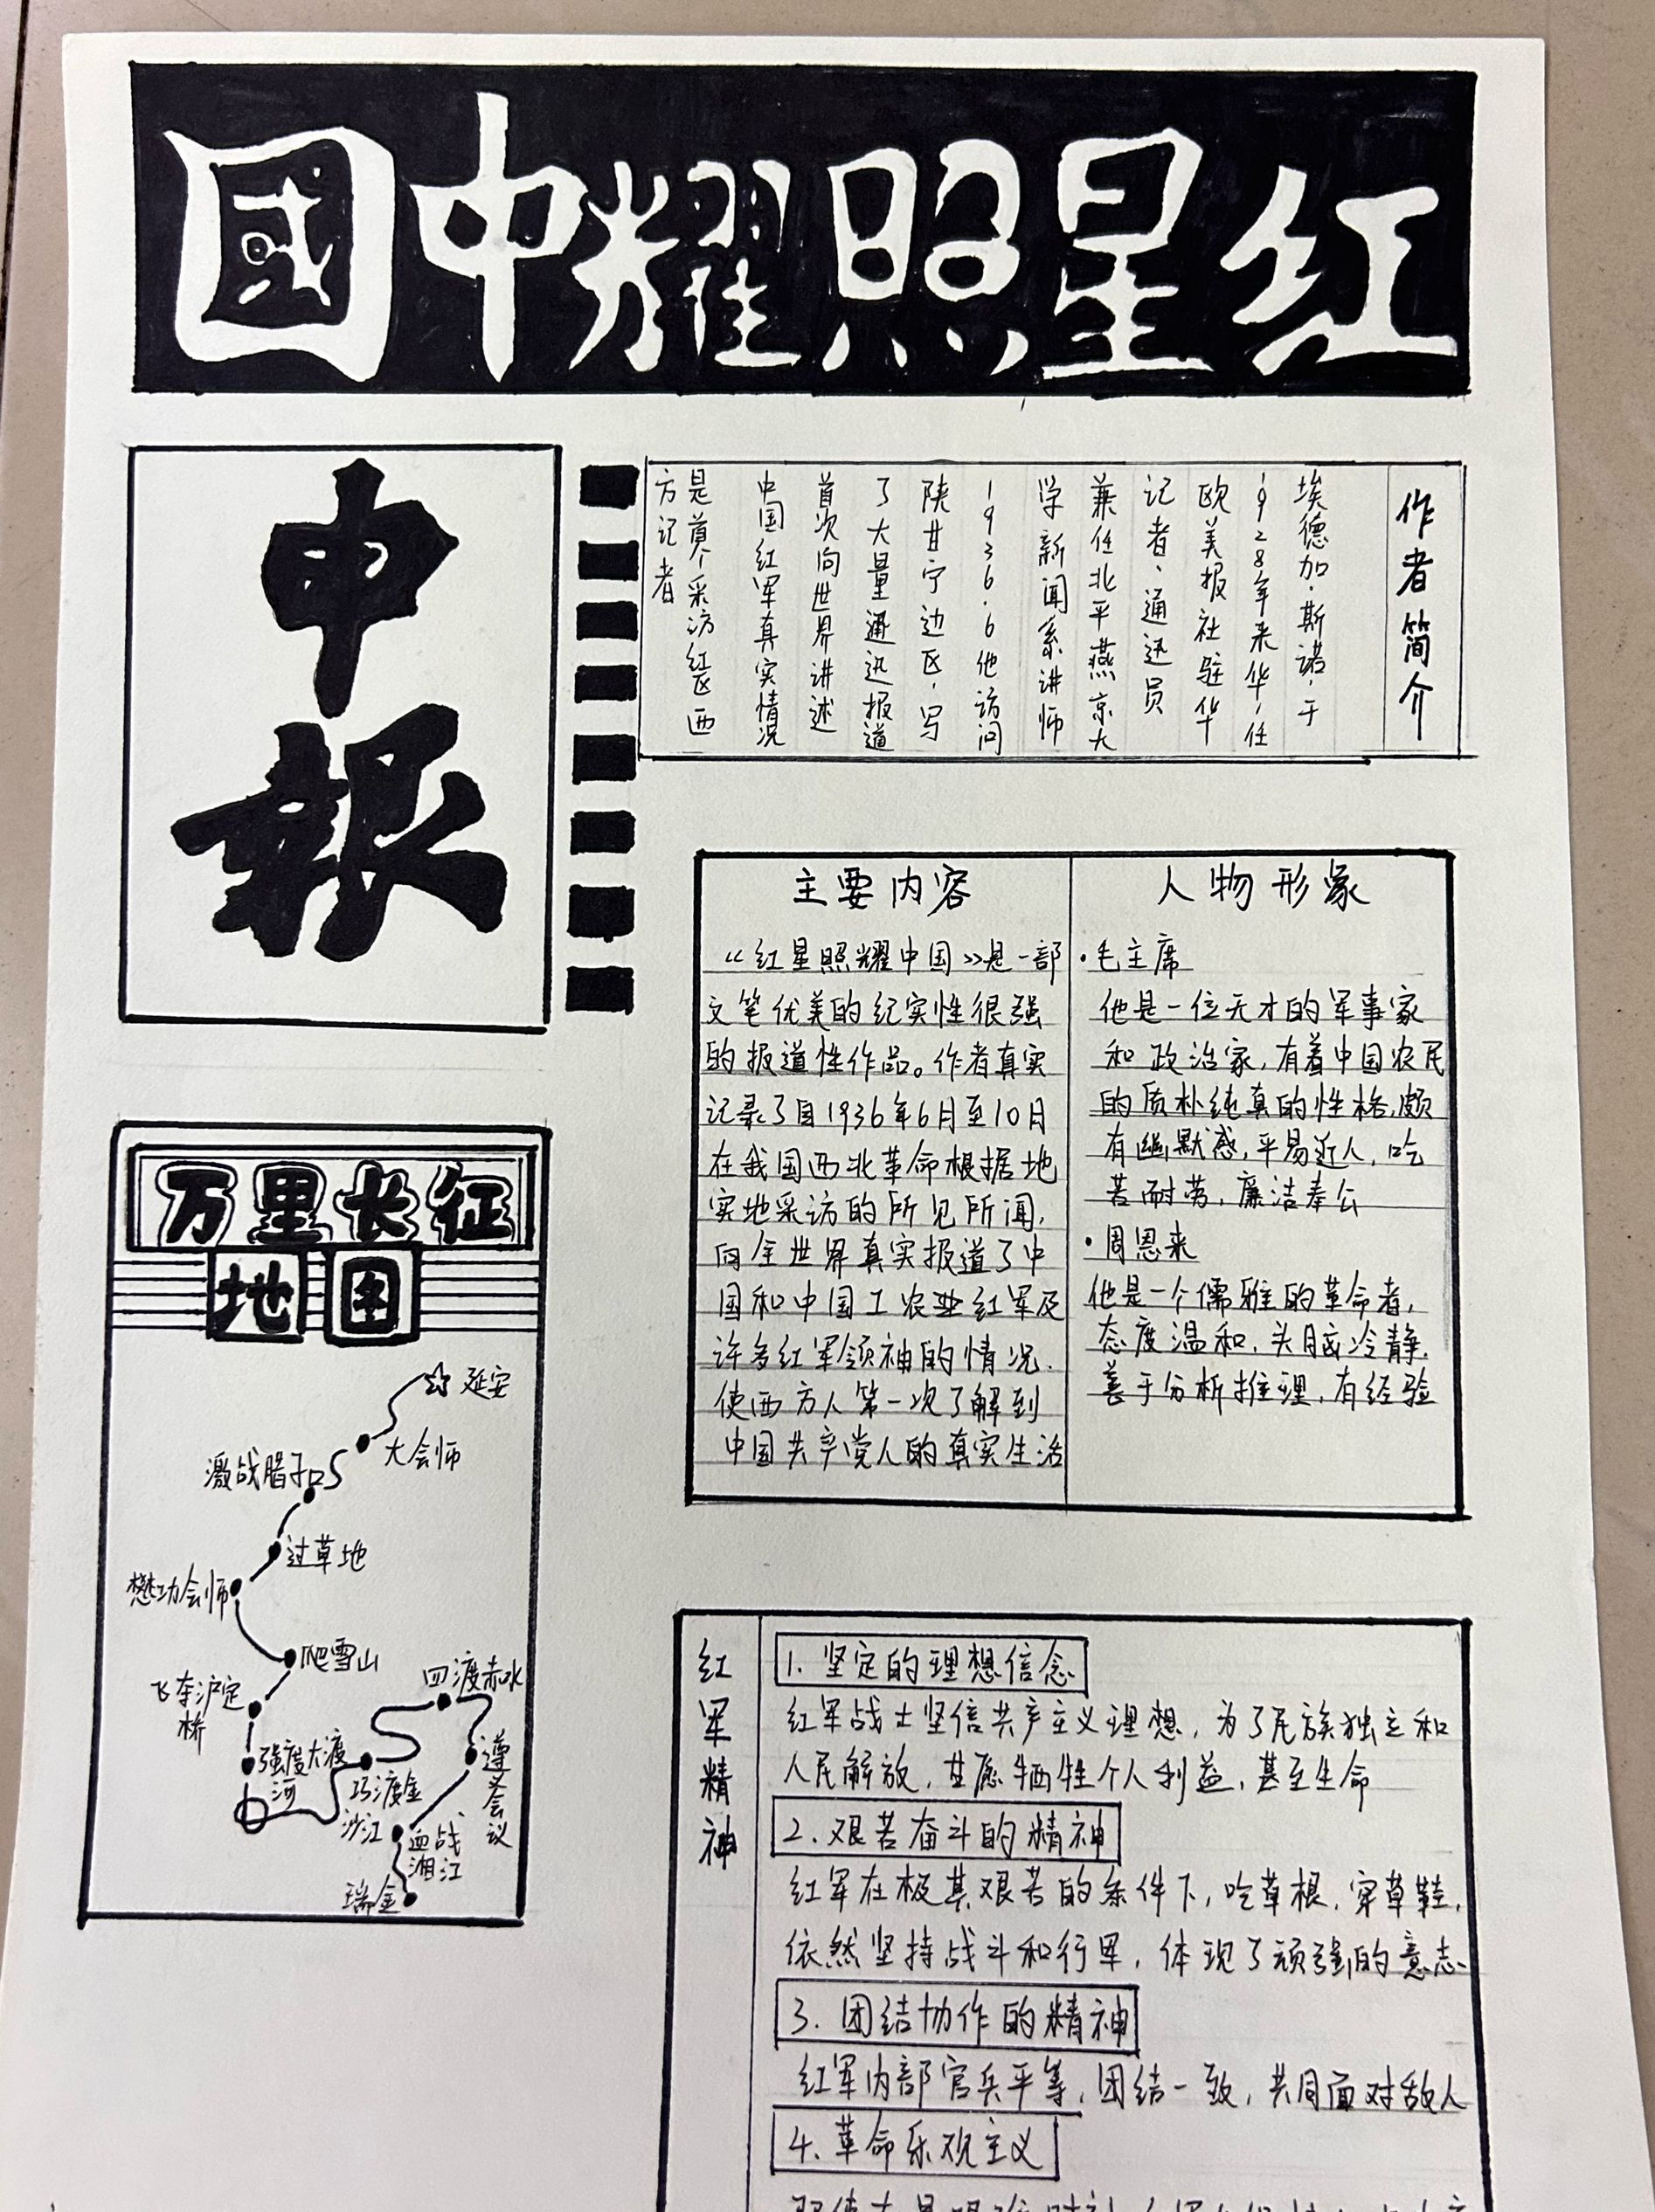 國中耀照星红
申報
作者简介
埃德加·斯诺,于
1928年来华,任
欧美报社驻华
记者、通迅员
兼任北平燕京大
学新闻系讲师
1936.6他访问
陕甘宁边区,写
了大量通迅报道
首次向世界讲述
中国红军真实情况
是首个采访红区西
方记者
主要内容
《红星照耀中国》是一部
文笔优美的纪实性很强
的报道性作品。作者真实
记录了自1936年6月至10月
在我国西北革命根据地
实地采访的所见所闻,
向全世界真实报道了中
国和中国工农业红军及
许多红军领袖的情况.
使西方人第一次了解到
中国共产党人的真实生活
人物形象
·毛主席
他是一位天才的军事家
和政治家,有着中国农民
的质朴纯真的性格,颇
有幽默感,平易近人,吃
苦耐劳,廉洁奉公
·周恩来
他是一个儒雅的革命者,
态度温和,头脑冷静.
善于分析推理,有经验
万里长征
地图
延安
大会师
激战腊子口
过草地
懋功会师
爬雪山
飞夺泸定
桥
四渡赤水
强度大渡
河
巧渡金
沙江
遵义会议
血战
湘江
瑞金
红军精神
1.坚定的理想信念
红军战士坚信共产主义理想,为了民族独立和
人民解放,甘愿牺牲个人利益,甚至生命
2.艰苦奋斗的精神
红军在极其艰苦的条件下,吃草根,穿草鞋,
依然坚持战斗和行军,体现了顽强的意志
3.团结协作的精神
红军内部官兵平等,团结一致,共同面对敌人
4.革命乐观主义